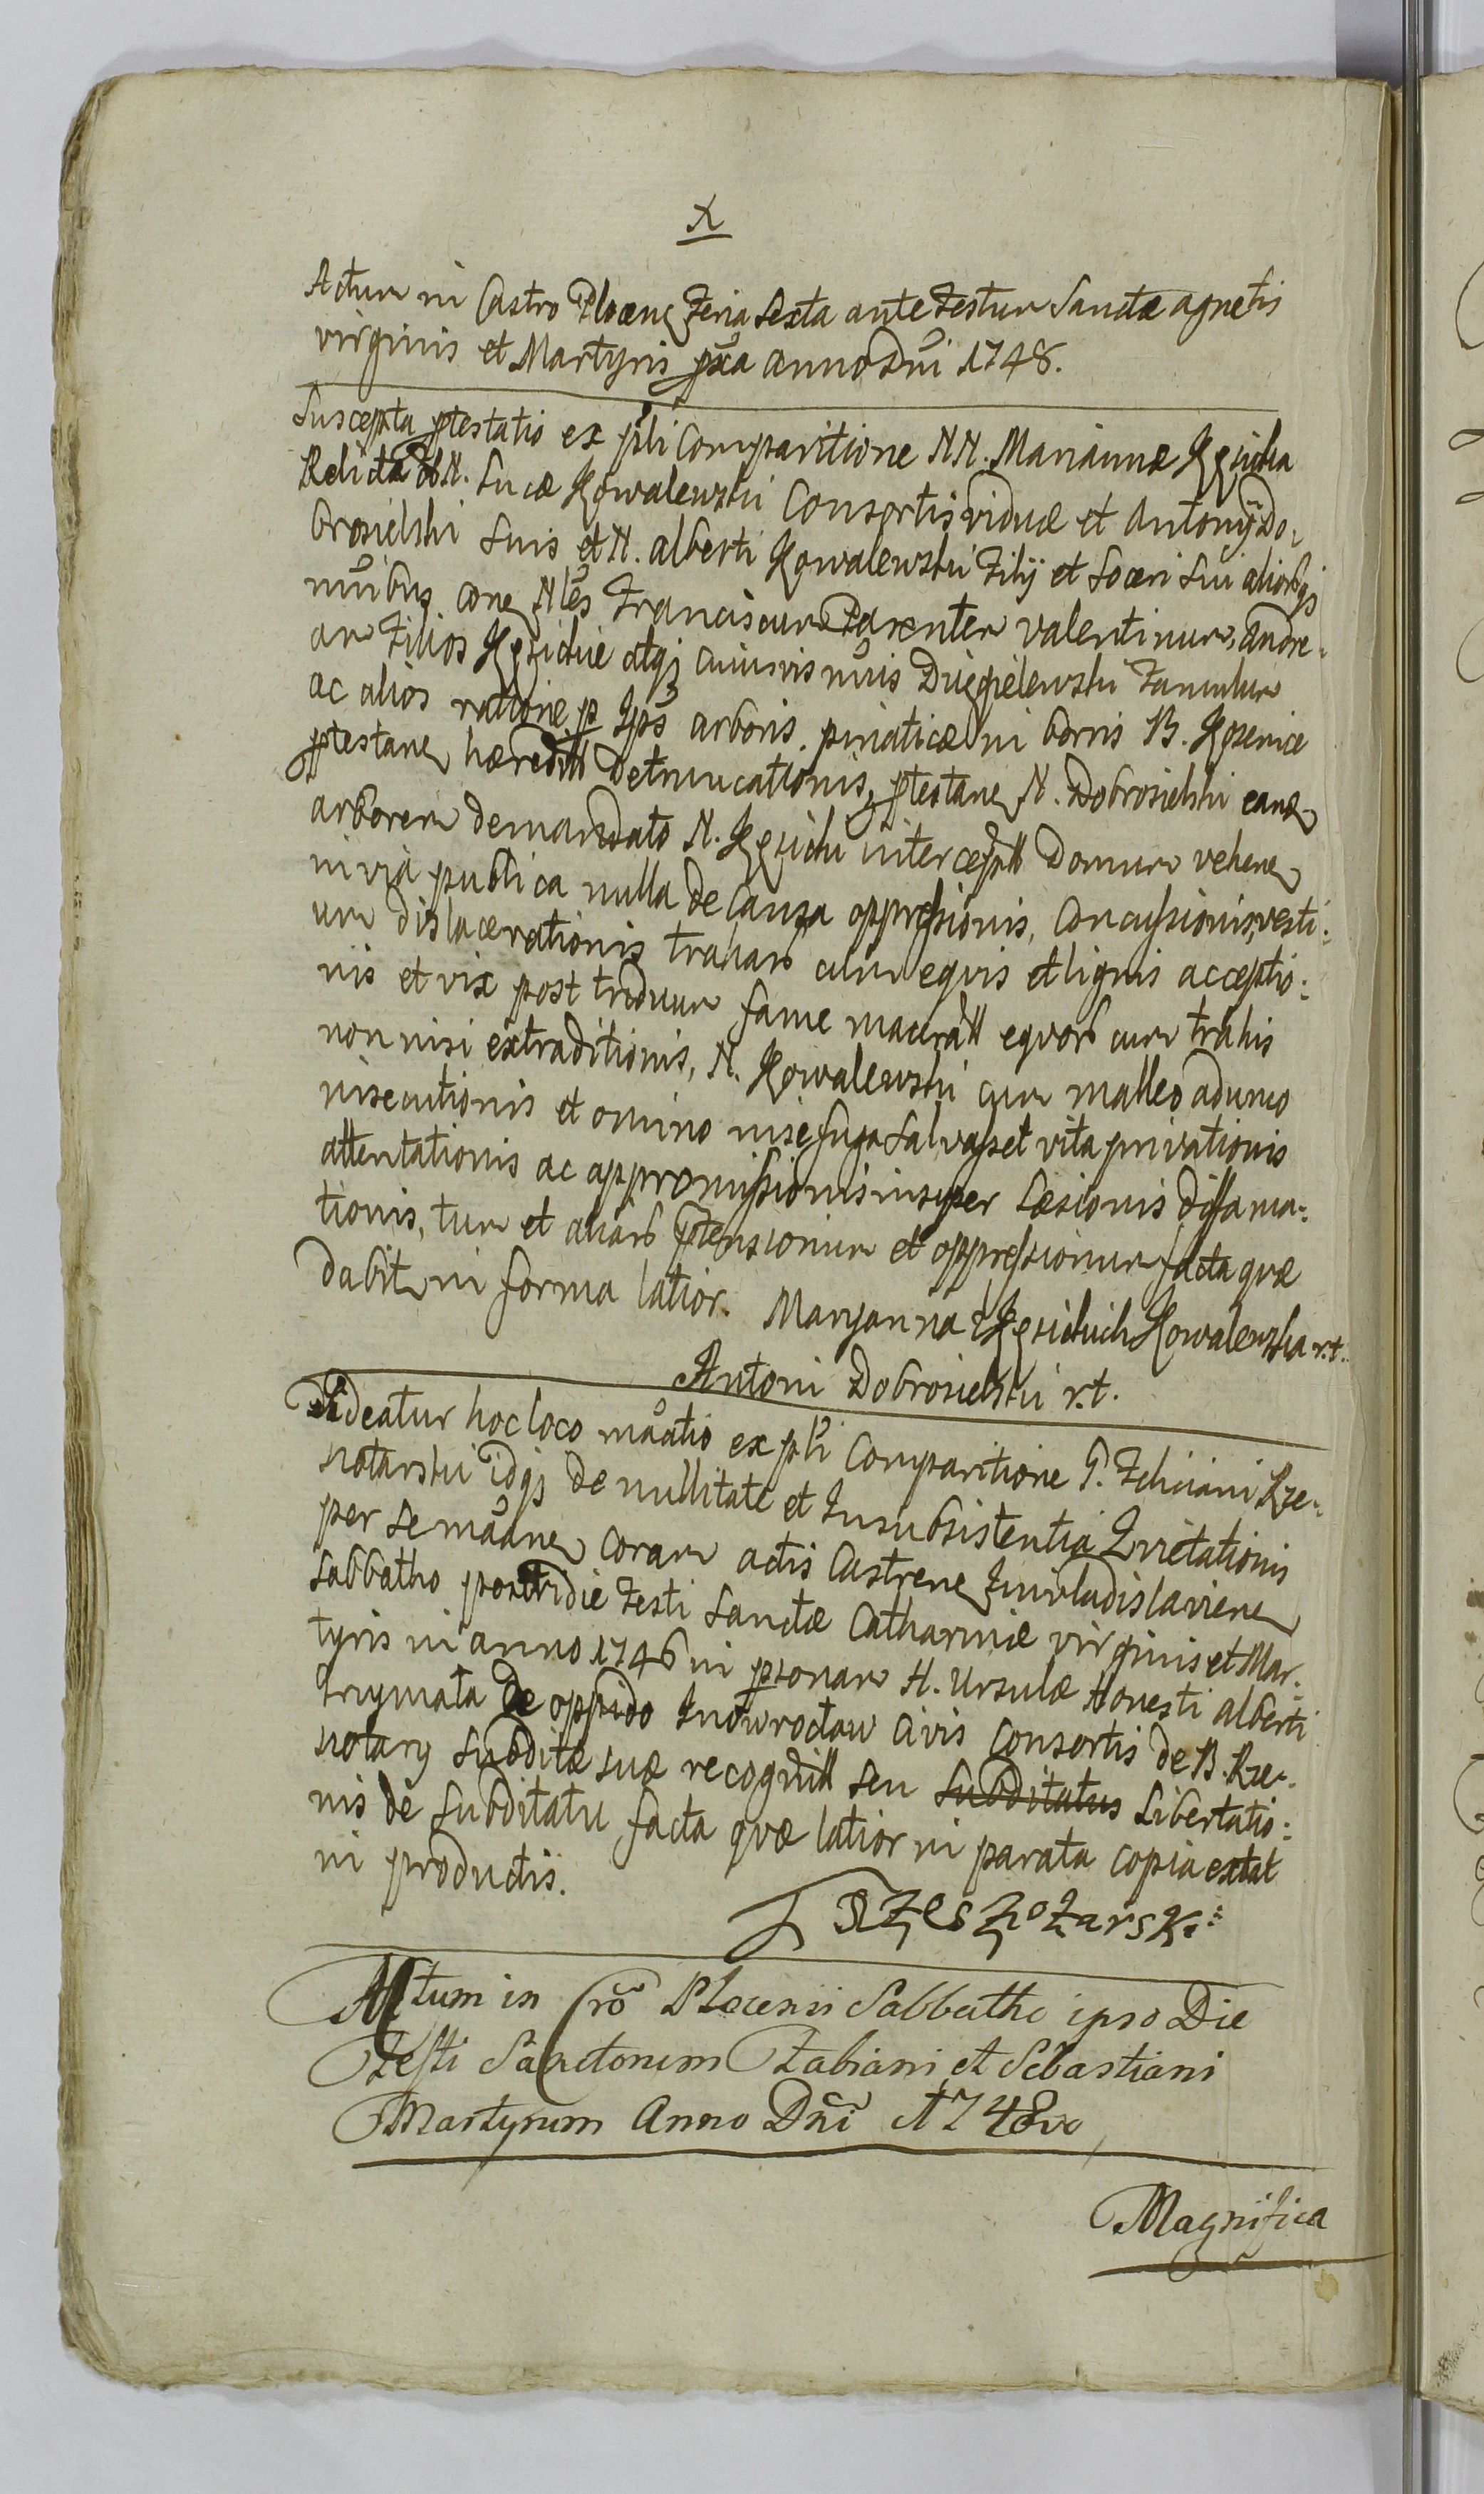 X
Actum in Castro Plocen Feria Sexta ante Festum Sanctæ agnetis
virginis et Martyris pxa anno Dni 1748.
Suscepta ptestatio ex pli Comparitione NN. Mariannæ
Relictæ N. Lucæ Kowalewski Consortis viduæ et Antonij Do:
brosielski suis et N. alberti Kowalewski Filij et Soceri sui
nnibus cone Nles Franciscum Parentem valentinum, Andre:
am Filios atqz cuiusvis nnis Famulum
ac alios ratione p Ips arboris. piniaticæ in bonis B.
ptestane hæreditt Detruncationis, ptestane N. Dobrosielski eand
arborem demandato N. intercepitt Domum vehene
in via publica nulla de Causa oppressionis, Concussionis, vesti:
um dislacerationis trahar cum equis et lignis acceptio:
nis et vix post triduum fame maceratt equor cum trahis
non nisi extraditionis, N. Kowalewski cum malleo adunco
insecutionis et omnino nise fuga salvasset vita privationis
attentationis ac appromissionis insuper Læsionis diffama:
tionis, tum et aliar ptensionum et oppressionum facta quæ
dabit in forma latior. Maryanna Kowalewska r.t.
Antoni Dobrosielski r.t.
Videatur hoc loco maatio ex pli Comparitione G. Feliciani Rze:
notarski idqz de nullitate et Insubsistentia Qvietationis
per se maane coram actis Castrene Iuniuladislaviene
Sabbatho postridie Festi Sanctæ Catharinæ virginis et Mar:
tyris in anno 1746 in psonam H. Ursulæ Honesti alberti
de oppido Inowrocław Civis Consortis de B. Rze:
notary Subditæ suæ recognitt seu Subditatus Libertatio:
nis de Subditatu facta quæ latior in parata copia extat
in productis.
F Rzesznotarski
Actum in Cro Plocensi Sabbatho ipso Die
Festi Sanctorum Fabiani et Sebastiani
Martyrum Anno Dni 1748vo
Magnifica